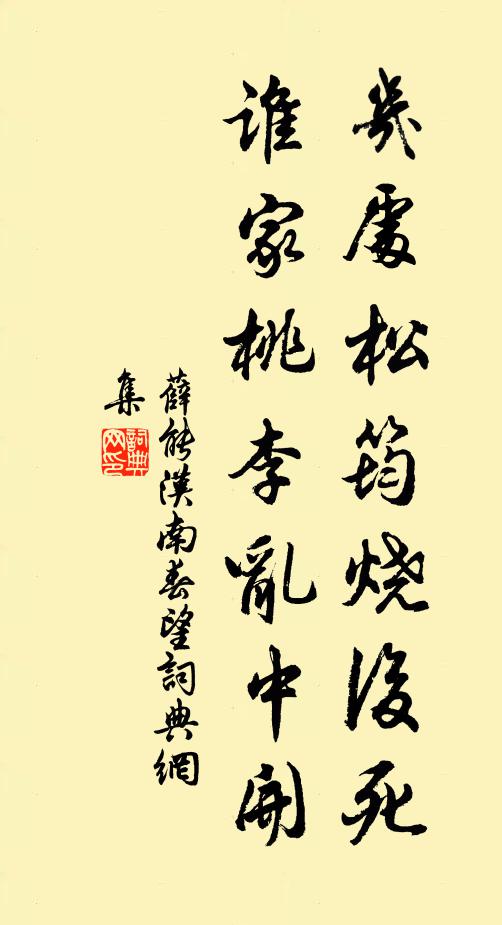 幾處松筠燒後死
誰家桃李亂中開
薛能漢南春望詞典網
集
詞典網印